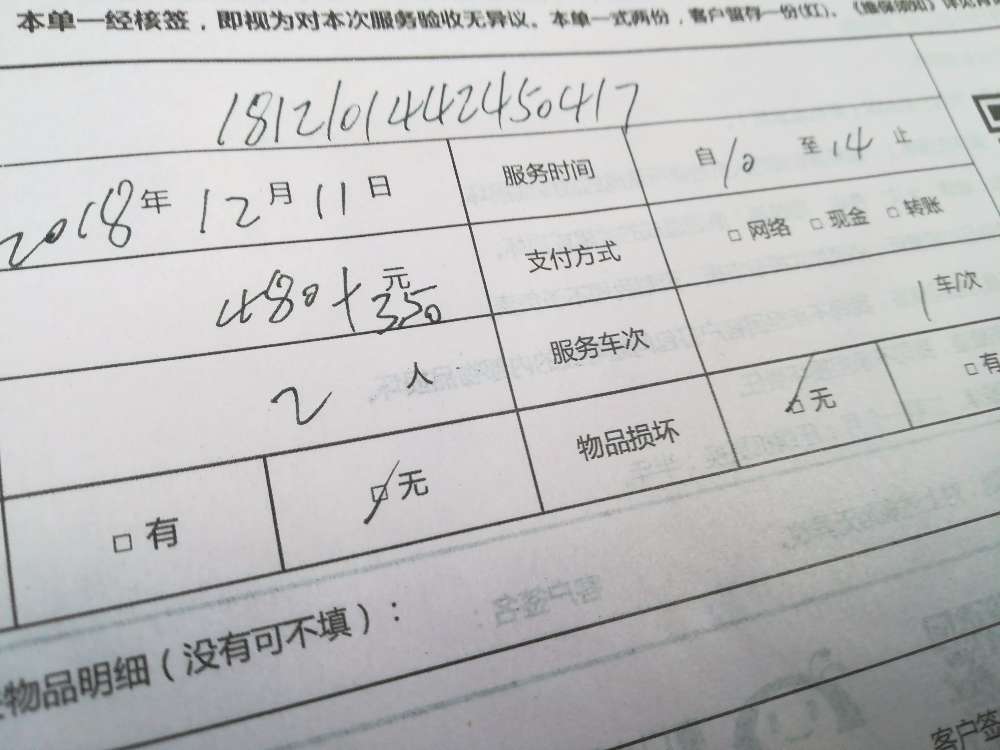 本单一经核签，即视为对本次服务验收无异议。本单一式两份，客户留存一份(红)、《维保须知》详见背
181210144245041７
2018年 12月 11日 服务时间 自10 至14止
480+350元 支付方式 □网络 □现金 □转账
2 人 服务车次 1 车/次
□有 ☑无 物品损坏 ☑无 □有
物品明细（没有可不填）：
客户签名
客户签